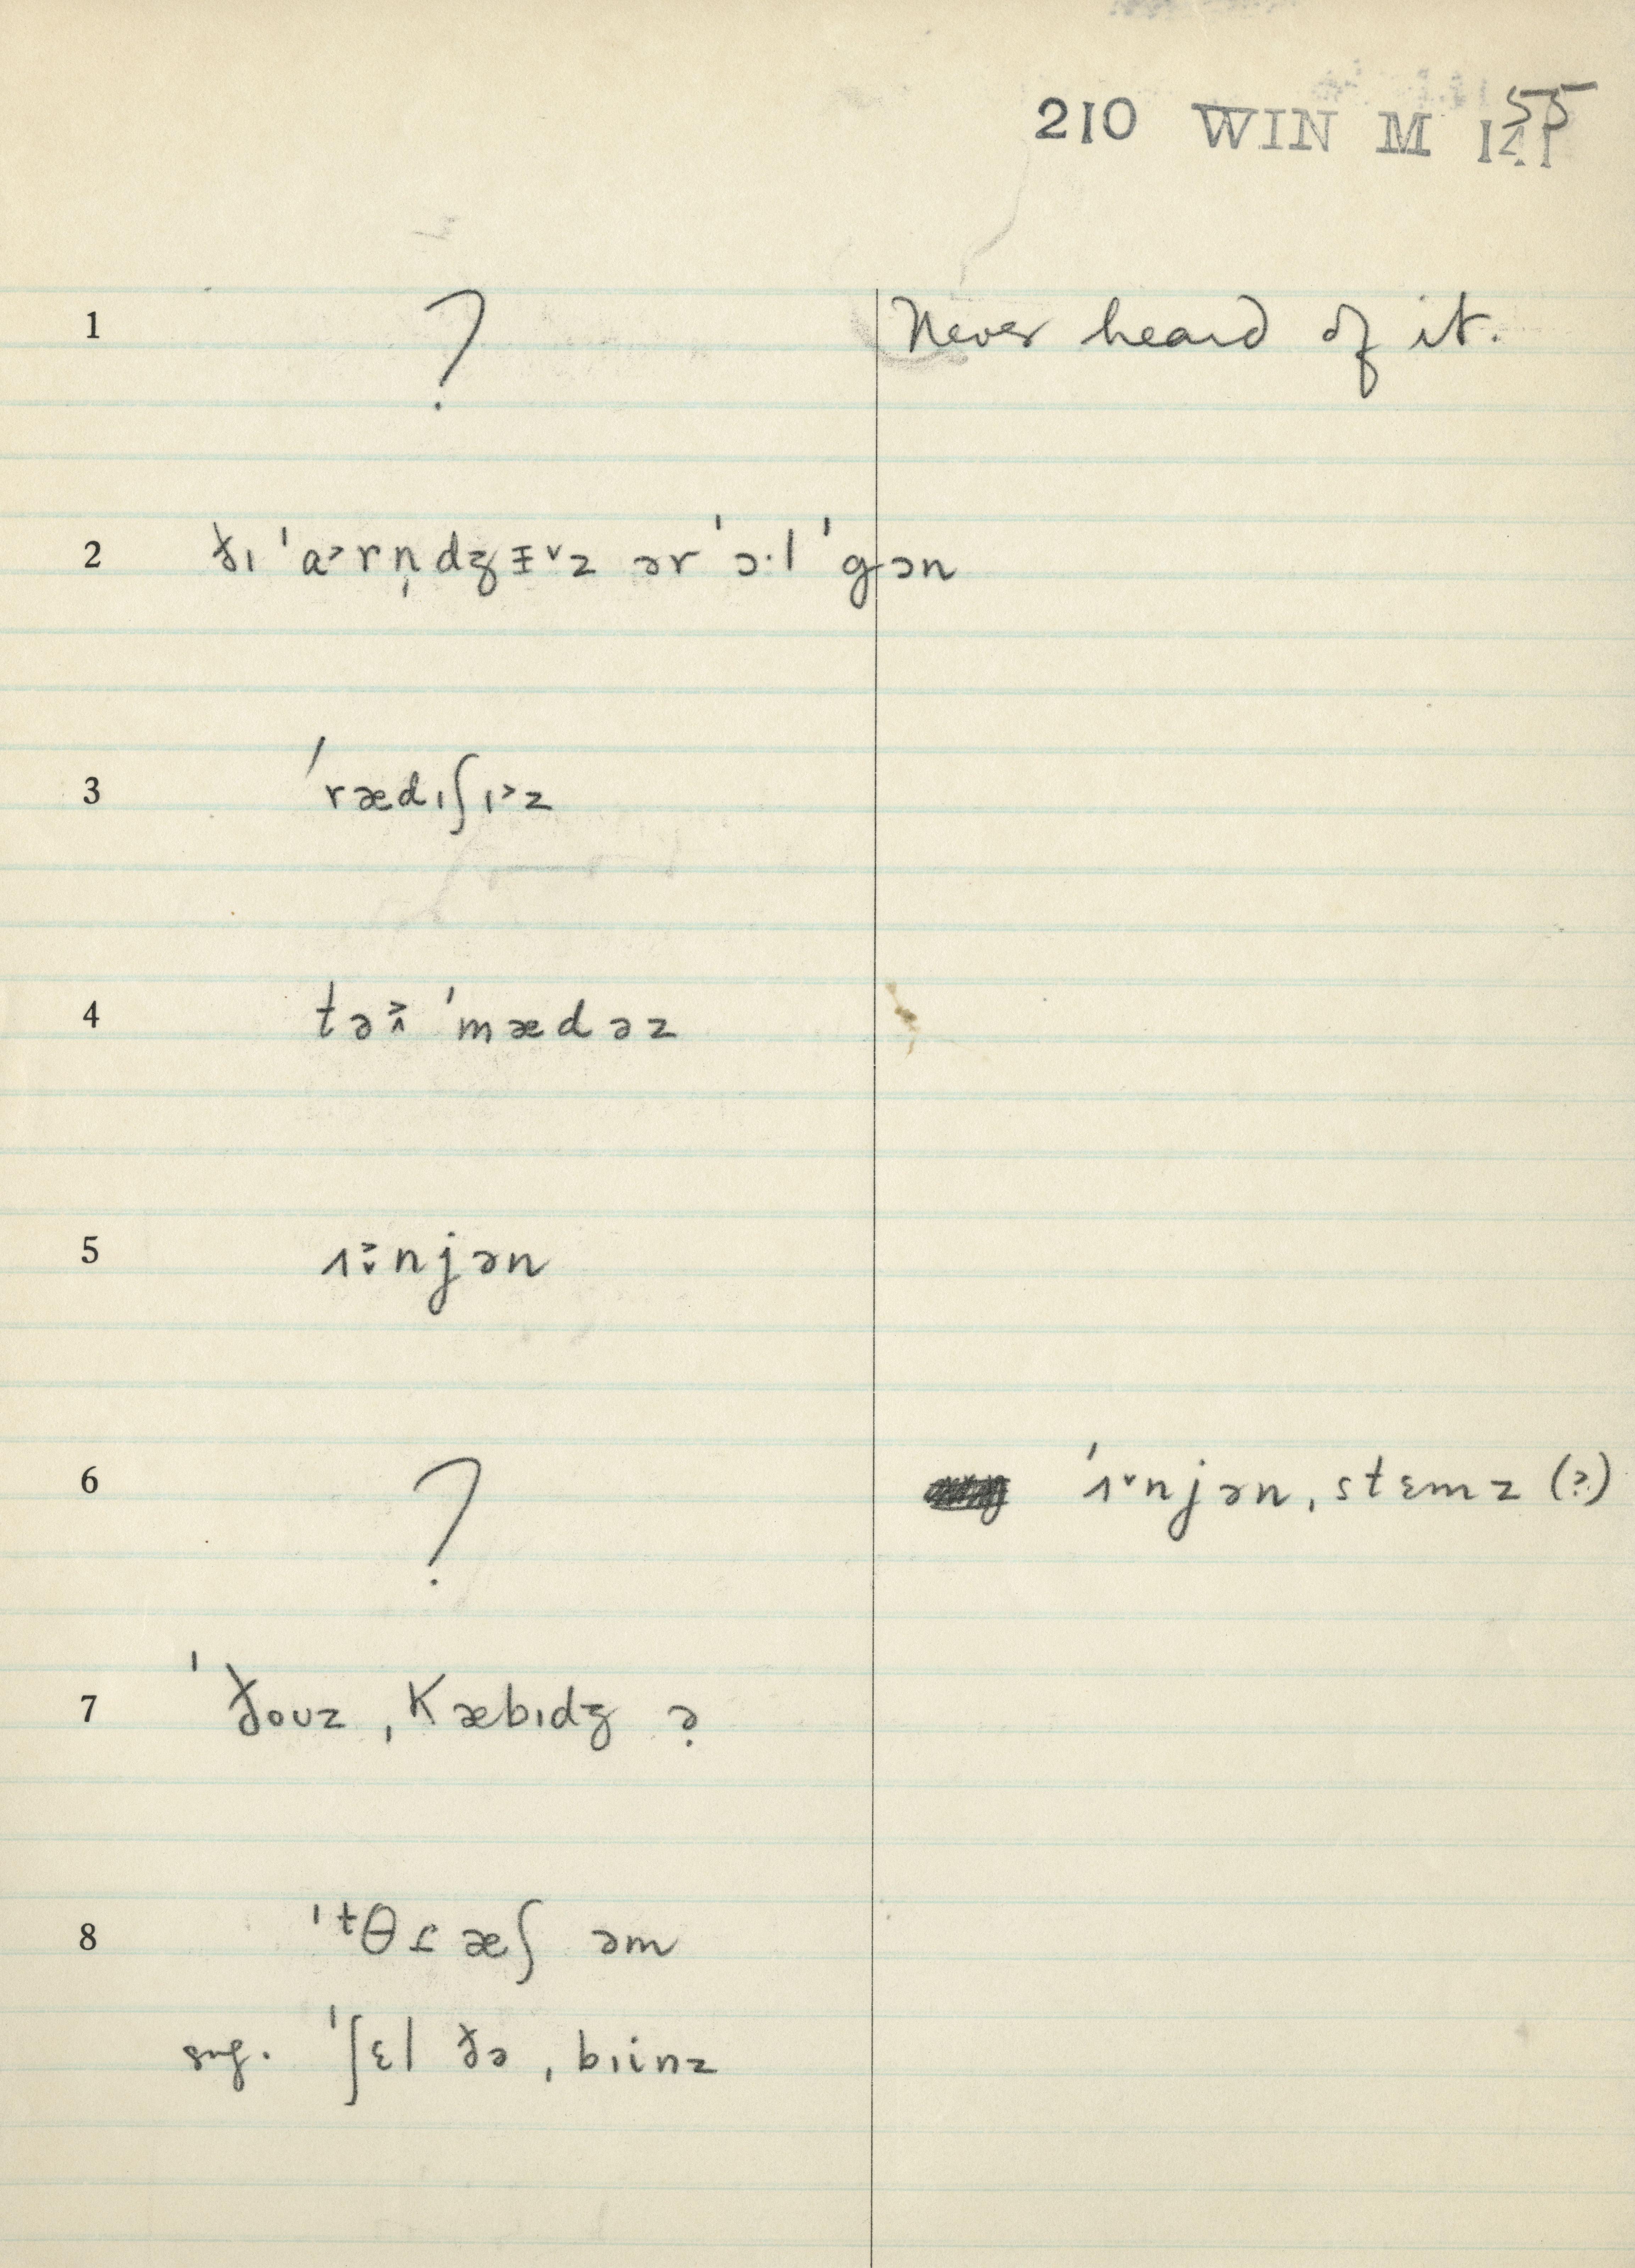 210 WIN M 55
1 ? Never heard of it.
2 ðɪ ˈa˃rn̩dʒᵻ˅z ər ˈɔ·l ˈgɔn
3 ˈrædɪʃɪ˃z
4 tə ˈmædəz
5 ʌnjən
6 ? ˈʌ˅njənˌstɛmz (?)
7 ˈðoʊzˌkæbɪdʒ ə̣
8 ˈᵗθɾæʃ əm
sug. ˈʃɛl ðəˌbɪinz